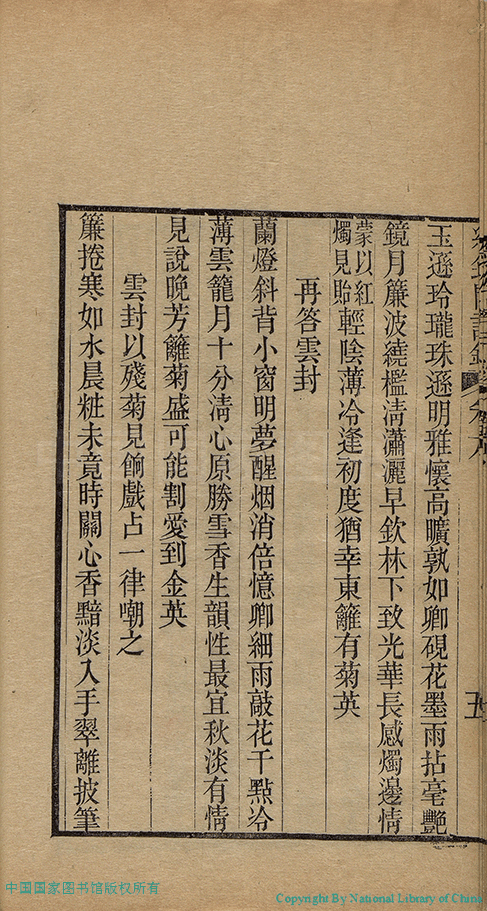 玉遜玲瓏珠遜明雅懷高曠孰如卿硯花墨雨拈毫艷
鏡月簾波繞檻淸瀟灑早欽林下致光華長感燭邊情
蒙以紅
燭見貽輕陰薄冷逢初度猶幸東籬有菊英
再答雲封
蘭燈斜背小窗明夢醒烟消倍憶卿細雨敲花千點冷
薄雲籠月十分淸心原勝雪香生韻性最宜秋淡有情
見說晚芳籬菊盛可能割愛到金英
雲封以殘菊見餉戲占一律嘲之
簾捲寒如水晨粧未竟時關心香黯淡入手翠離披筆
五
中国国家图书馆版权所有
Copyright By National Library of China